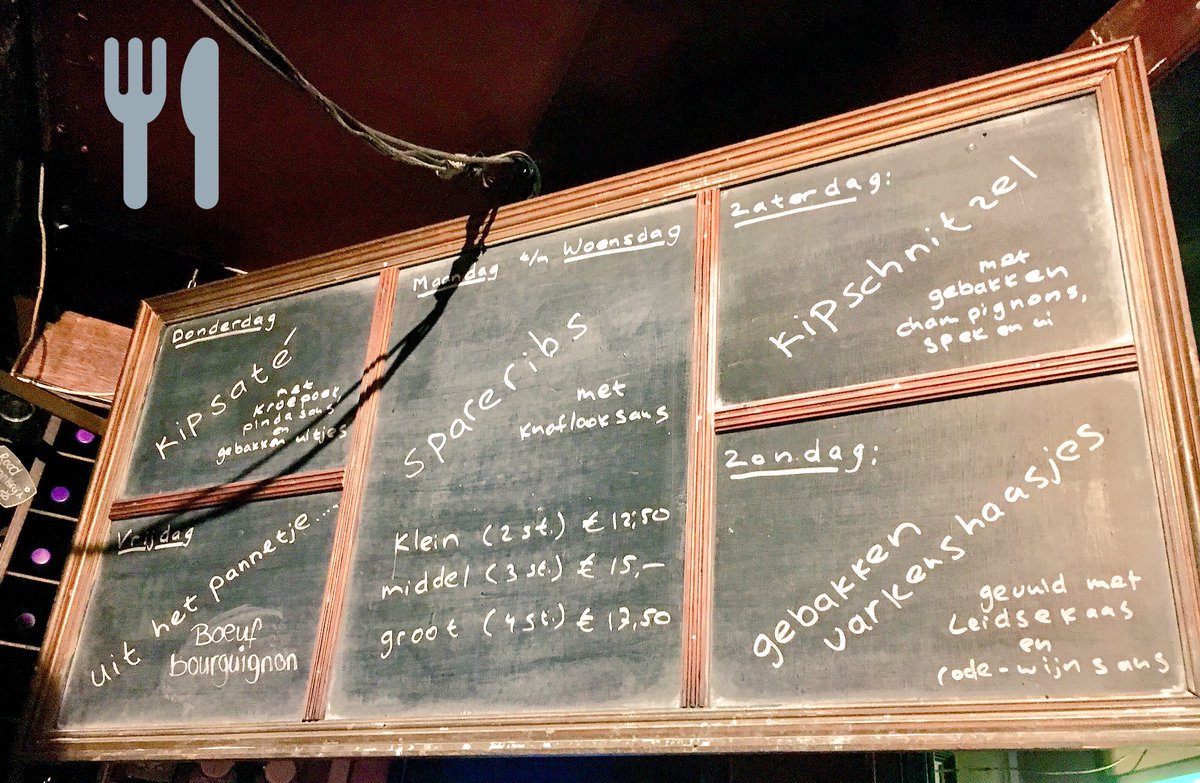 Donderdag
Kipsaté
met
kroepoek,
pindasaus
en
gebakken uitjes
Vrijdag
uit het pannetje....
Boeuf
bourguignon
Maandag t/m Woensdag
Spareribs
met
Knoflooksaus
Klein (2 st.) € 12,50
middel (3 st.) € 15,-
groot (4 st.) € 17,50
Zaterdag:
Kipschnitzel
met
gebakken
champignons,
spek en ui
Zondag:
gebakken
varkenshaasjes
gevuld met
Leidsekaas
en
rode-wijnsaus